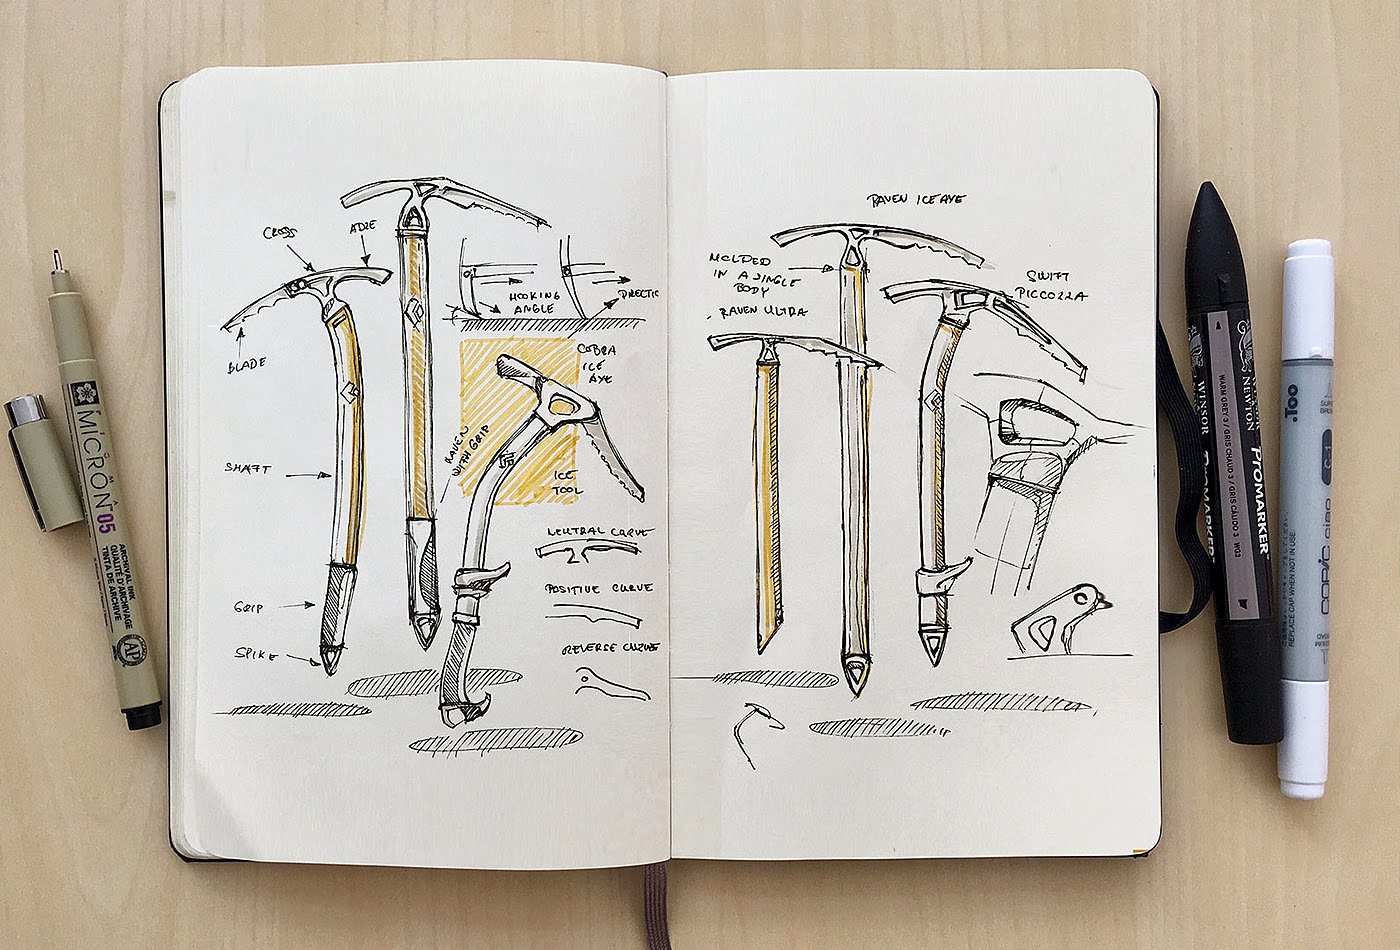 CROSS
ADZE
BLADE
SHAFT
GRIP
SPIKE
HOOKING
ANGLE
DIRECTIC
COBRA
ICE
AXE
RAVEN
WITH GRIP
ICE
TOOL
NEUTRAL CURVE
POSITIVE CURVE
REVERSE CURVE
RAVEN ICE AXE
MOLDED
IN A SINGLE
BODY
RAVEN ULTRA
SWIFT
PICCOZZA
MICRON
05
ARCHIVAL INK
QUALITÉ D'ARCHIVAGE
TINTA DE ARCHIVE
AP
WINSOR
NEWTON
PROMARKER
PROMARKER
WARM GREY 3 / GRIS CHAUD 3 / GRIS CALIDO 3 WG3
.Too
COPIC ciao
REPLACE CAP WHEN NOT IN USE.